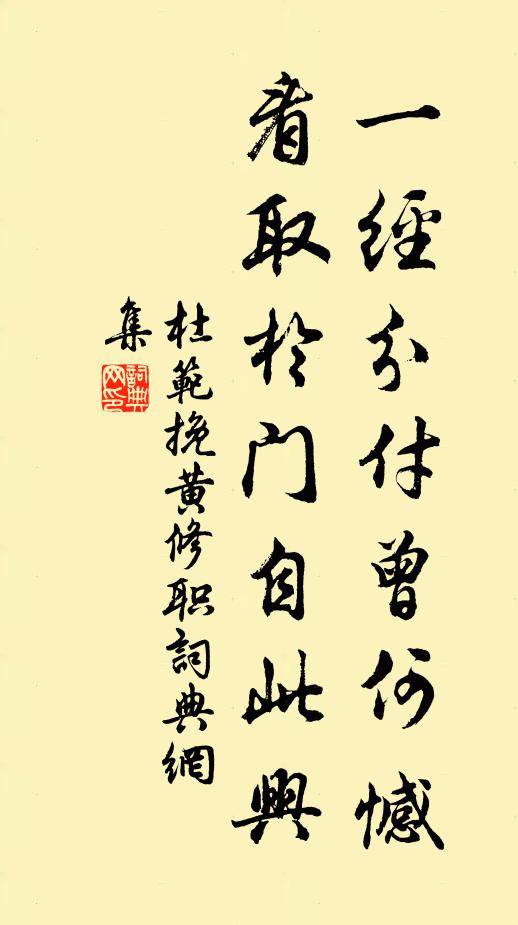 一經分付曾何憾
看取於门自此興
杜範挽黄修职詞典網
集
詞典网印